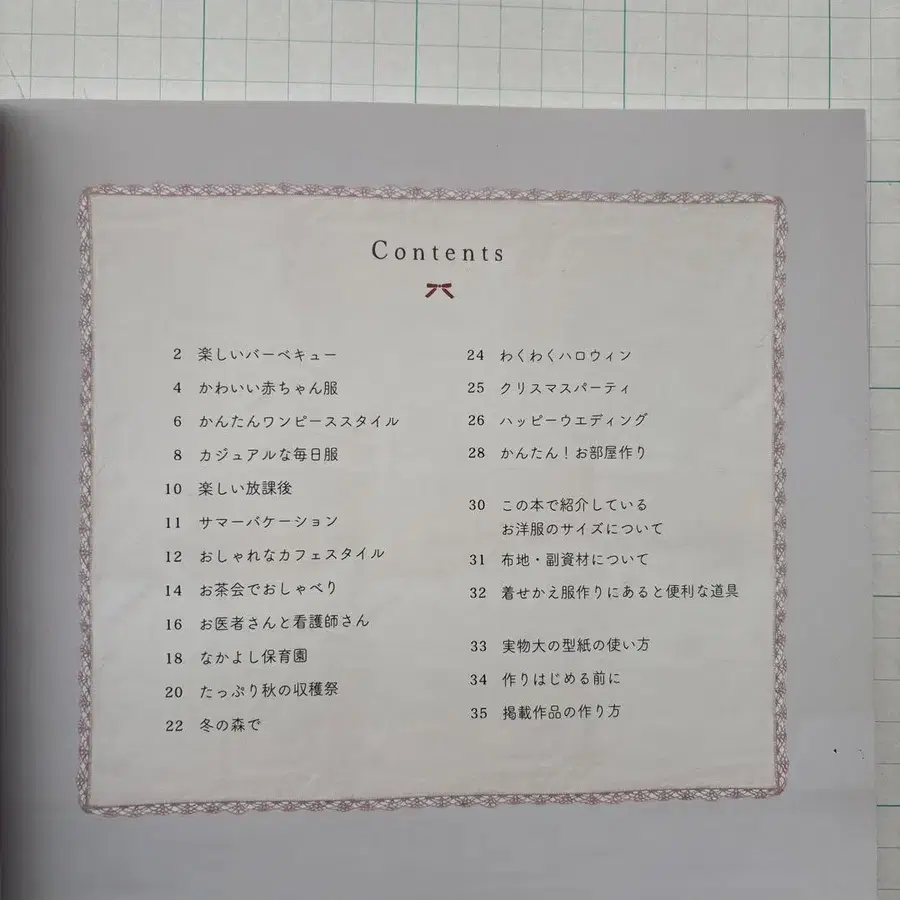 Contents
2 楽しいバーベキュー
4 かわいい赤ちゃん服
6 かんたんワンピーススタイル
8 カジュアルな毎日服
10 楽しい放課後
11 サマーバケーション
12 おしゃれなカフェスタイル
14 お茶会でおしゃべり
16 お医者さんと看護師さん
18 なかよし保育園
20 たっぷり秋の収穫祭
22 冬の森で
24 わくわくハロウィン
25 クリスマスパーティ
26 ハッピーウエディング
28 かんたん！お部屋作り
30 この本で紹介している
お洋服のサイズについて
31 布地・副資材について
32 着せかえ服作りにあると便利な道具
33 実物大の型紙の使い方
34 作りはじめる前に
35 掲載作品の作り方